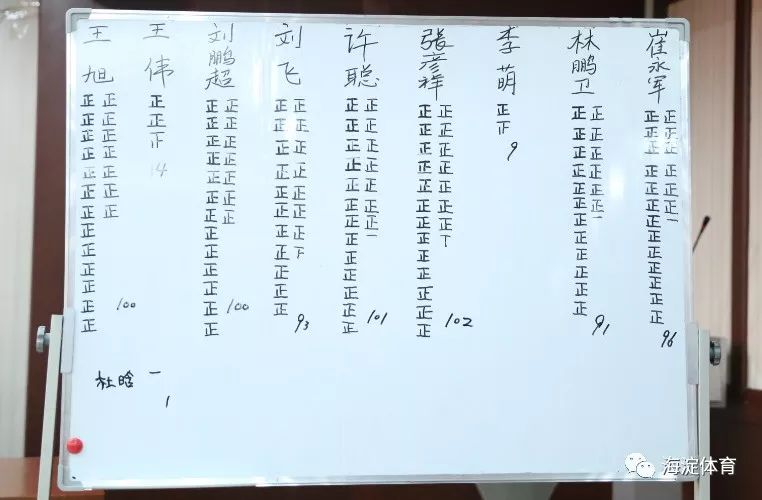 王旭
正正正正正正正正正正正正正
正正正正正正正
100
王伟
正正
14
刘鹏超
正正正正正正正正正正正正正
正正正正正正正
100
刘飞
正正正正正正正正正正正正
正正正正正正下
93
许聪
正正正正正正正正正正正正正
正正正正正正正一
101
張彦祥
正正正正正正正正正正正正正
正正正正正正正丅
102
李萌
正
9
林鹏卫
正正正正正正正正正正正正
正正正正正正一
91
崔永军
正正正正正正正正正正正正正
正正正正正正一
96
杜晗 一
1
海淀体育